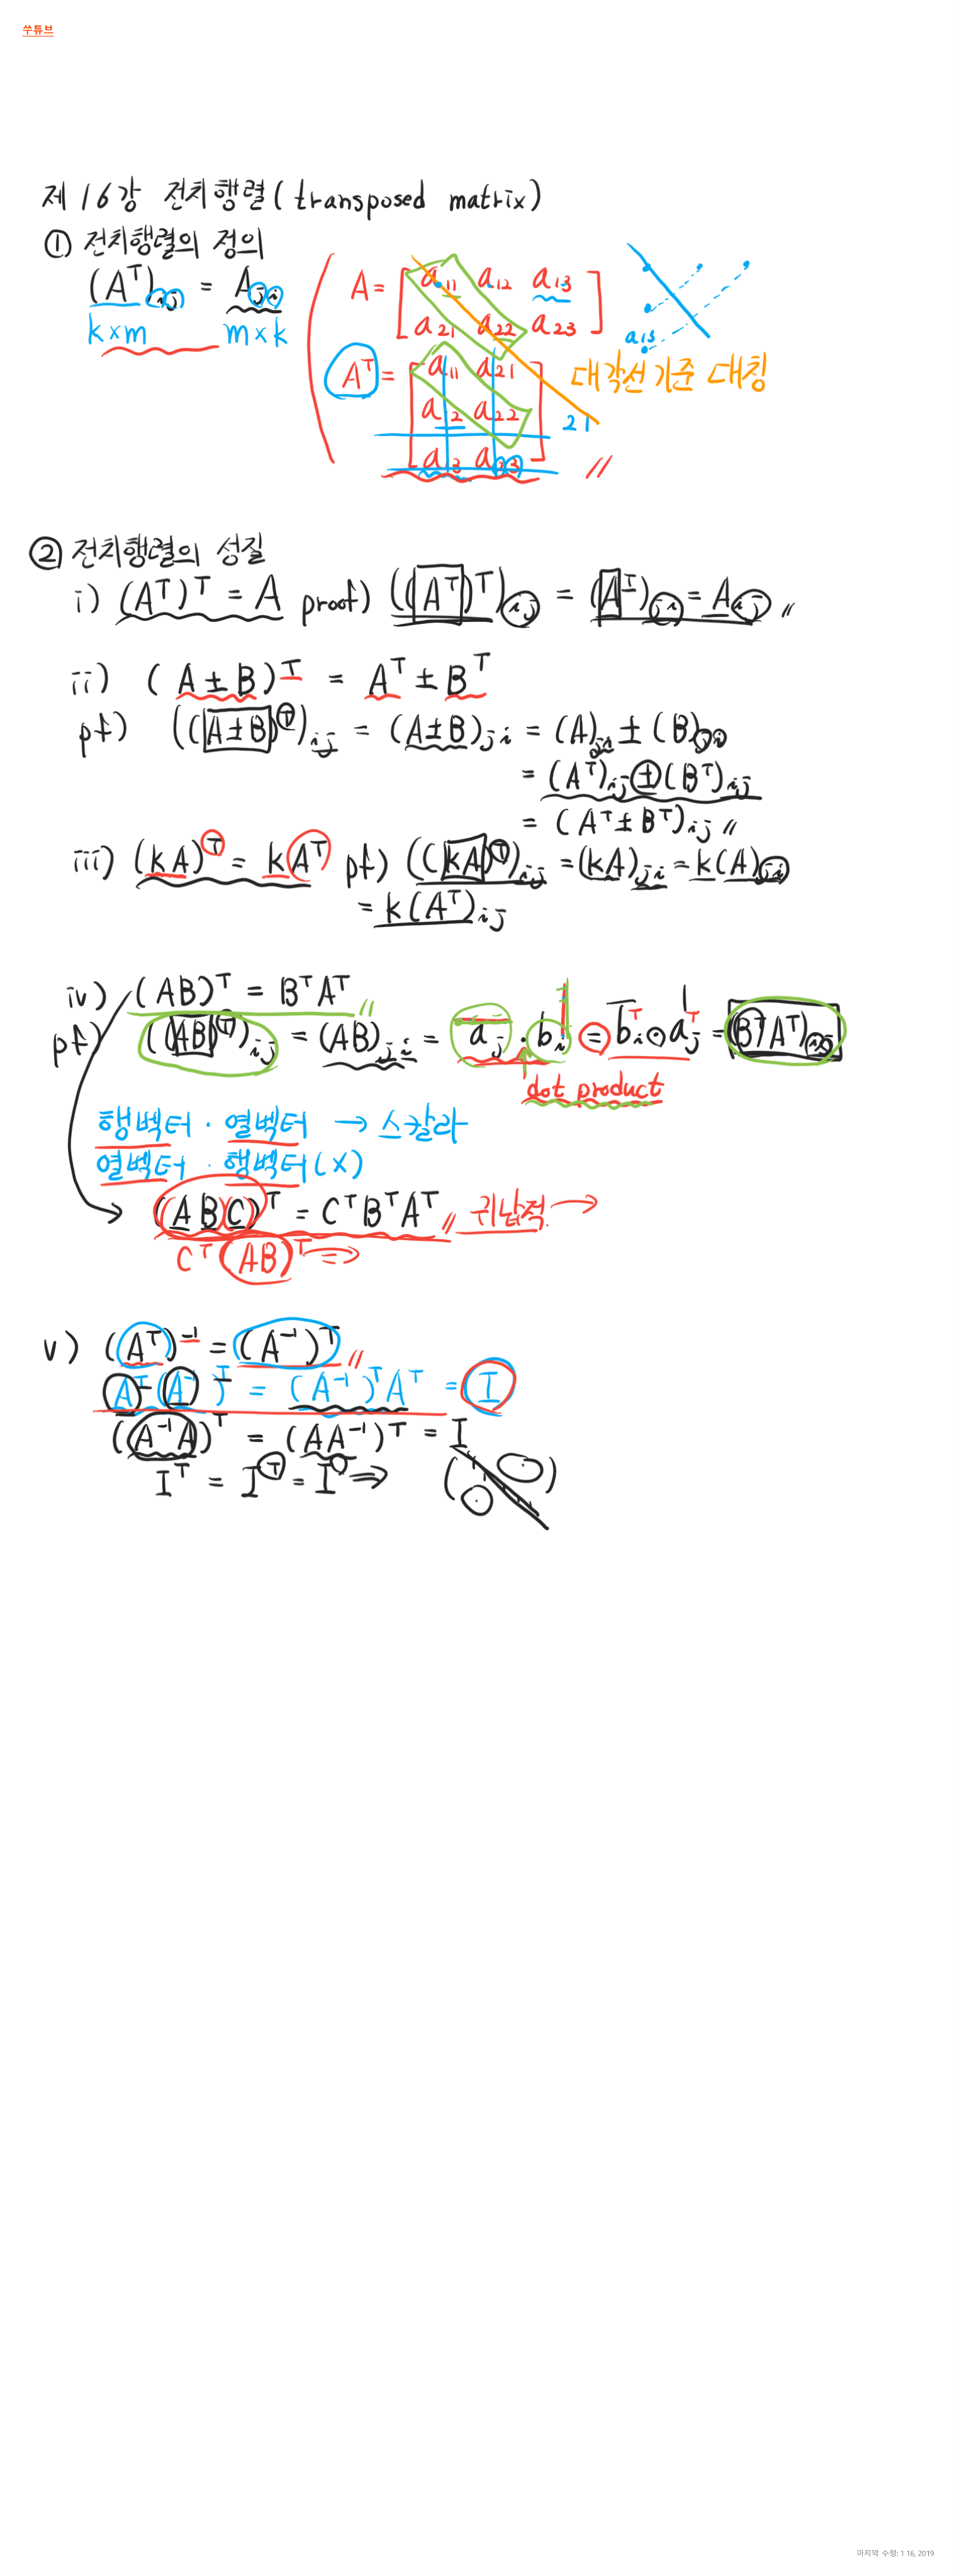 쑤튜브
제 16강 전치행렬(transposed matrix)
① 전치행렬의 정의
(Aᵀ)ij = Aji
k×m m×k
A = [a11 a12 a13
a21 a22 a23]
a13
Aᵀ = [a11 a21
a12 a22
a13 a23]
대각선 기준 대칭
21
② 전치행렬의 성질
i) (Aᵀ)ᵀ = A proof) ((Aᵀ)ᵀ)ij = (Aᵀ)ji = Aij
ii) (A±B)ᵀ = Aᵀ ± Bᵀ
pf) ((A±B)ᵀ)ij = (A±B)ji = (A)ji ± (B)ji
= (Aᵀ)ij ± (Bᵀ)ij
= (Aᵀ±Bᵀ)ij
iii) (kA)ᵀ = kAᵀ pf) ((kA)ᵀ)ij = (kA)ji = k(A)ji
= k(Aᵀ)ij
iv) (AB)ᵀ = BᵀAᵀ
pf) ((AB)ᵀ)ij = (AB)ji = aj · bi = biᵀ · ajᵀ = (BᵀAᵀ)ij
dot product
행벡터 · 열벡터 → 스칼라
열벡터 · 행벡터(x)
((AB)(C))ᵀ = CᵀBᵀAᵀ 귀납적 →
Cᵀ(AB)ᵀ ⇒
v) (Aᵀ)⁻¹ = (A⁻¹)ᵀ
Aᵀ(A⁻¹)ᵀ = (A⁻¹)ᵀAᵀ = I
(A⁻¹A)ᵀ = (AA⁻¹)ᵀ = I
Iᵀ = Iᵀ = I ⇒
마지막 수정: 1 16, 2019